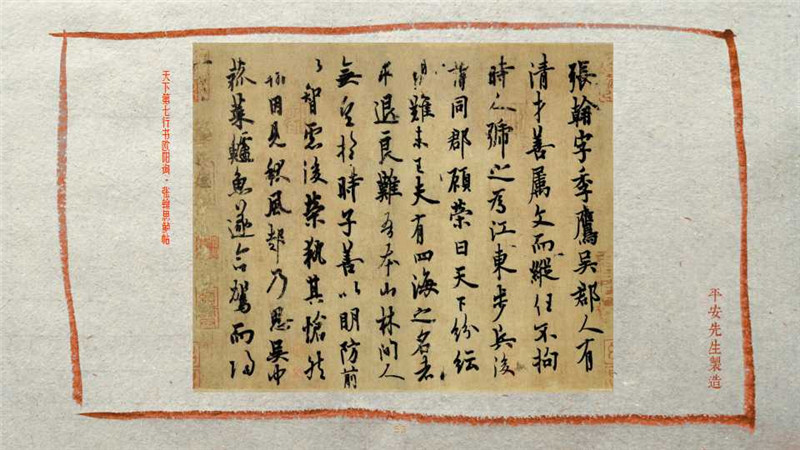 平安先生製造
張翰字季鷹吳郡人有
清才善屬文而縱任不拘
時人號之為江東步兵後
謂同郡顧榮曰天下紛紜
禍難未已夫有四海之名者
求退良難吾本山林間人
無望於時子善以明防前
以智慮後榮執其愴然
翰因見秋風起乃思吳中
菰菜鱸魚遂命駕而歸
天下第七行书欧阳询·张翰思鲈帖